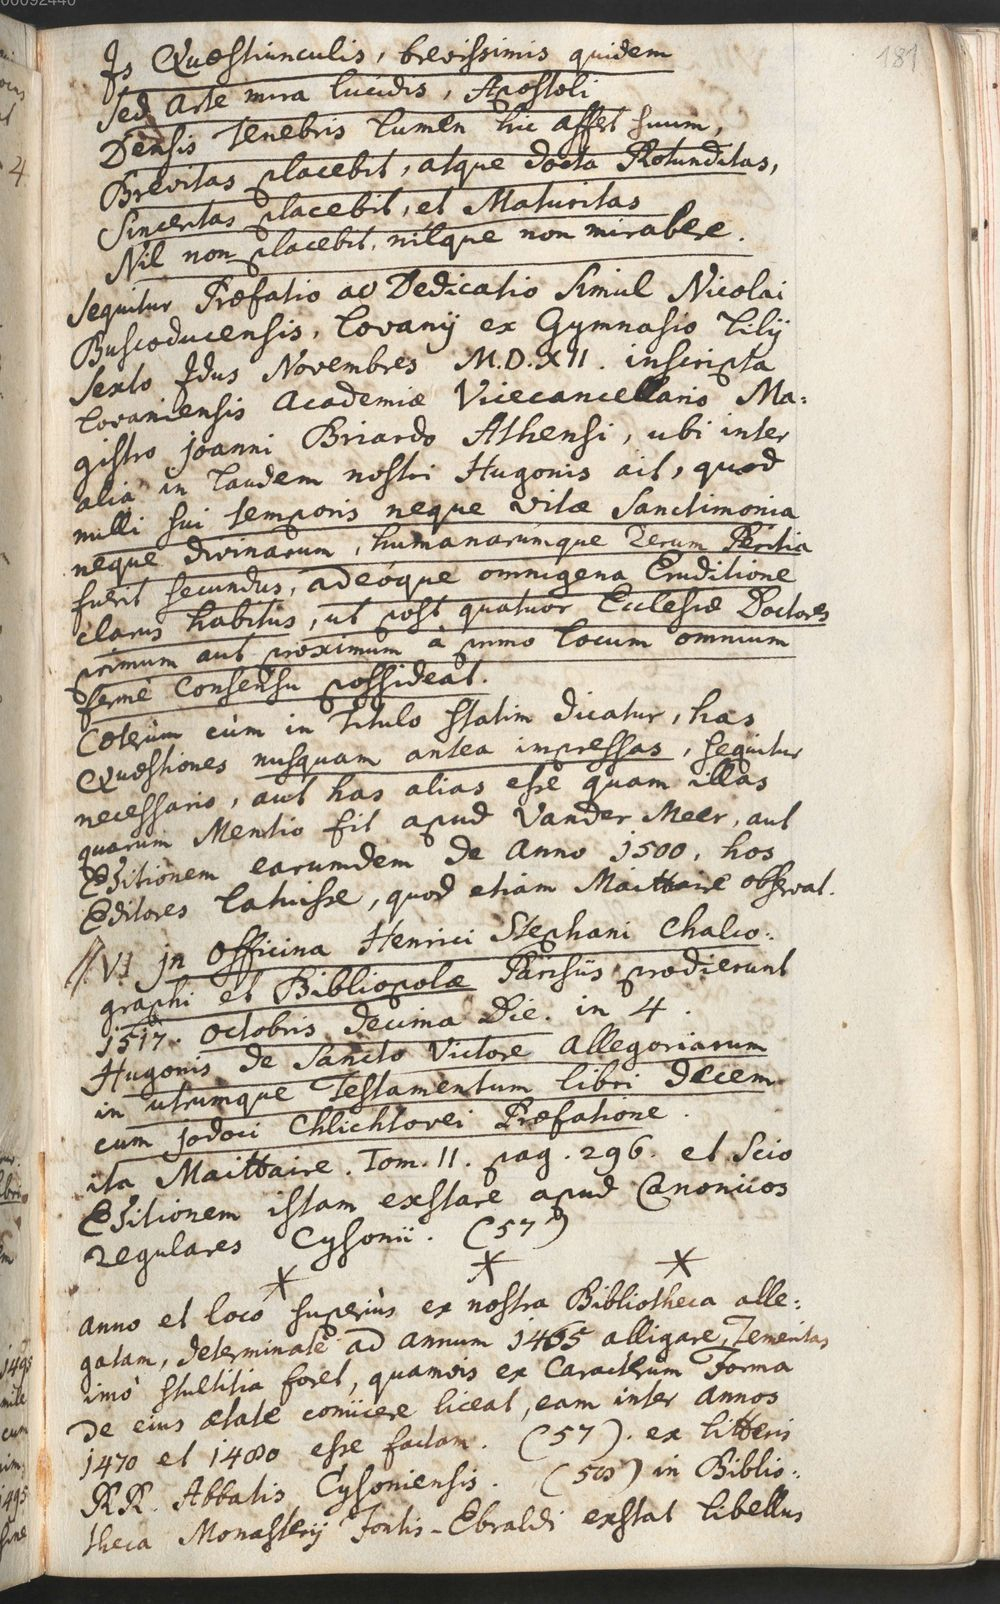 00092440
181
Is Quæstiunculis, brevissimis quidem
Sed Arte mira lucidis, Apostoli
Densis Tenebris lumen hic affert suum,
Brevitas placebit, atque docta Rotunditas,
Sinceritas placebit, et Maturitas
Nil non placebit, nilque non mirabere.
Sequitur Præfatio ac Dedicatio simul Nicolai
Buscoducensis, Lovanij ex Gymnasio Lilij
Sexto Idus Novembres M.D.XII. inscripta
Lovaniensis Academiæ Vicecancellario Ma:
gistro joanni Briardo Athensi, ubi inter
alia in laudem nostri Hugonis ait, quod
nulli sui temporis neque vitæ Sanctimonia
neque divinarum, humanarúmque Rerum Peritia
fuerit secundus, adeóque omnigena Eruditione
clarus habitus, ut post quatuor Ecclesiæ Doctores
primum aut proximum à primo locum omnium
fermè Consensu possideat.
Cæterùm cùm in Titulo statim dicatur, has
Quæstiones nusquam antea impressas, sequitur
necessario, aut has alias esse quam illas
quarum Mentio fit apud Vander Meer, aut
Editionem earumdem de Anno 1500, hos
Editores latuisse, quod etiam Maittaire observat.
// VI jn Officina Henrici Stephani Chalco:
graphi et Bibliopolæ Parisiis prodierunt
1517. Octobris decima Die. in 4.
Hugonis de Sancto Victore Allegoriarum
in utrumque Testamentum libri decem
cum jodoci Chlichtovei Præfatione.
ita Maittaire. Tom. II. pag. 296. et Scio
Editionem istam exstare apud Canonicos
regulares Cysonii. (57)
* * *
Anno et locò superiùs ex nostra Bibliotheca alle:
gatam, determinatè ad annum 1465 alligare, Temeritas
imò stultitia foret, quamvis ex Caracterum Forma
de eius ætate coniicere liceat, eam inter Annos
1470 et 1480 esse factam. (57). ex litteris
RR. Abbatis Cysoniensis. (58) in Biblio:
theca Monasterij Fontis-Ebraldi exstat libellus